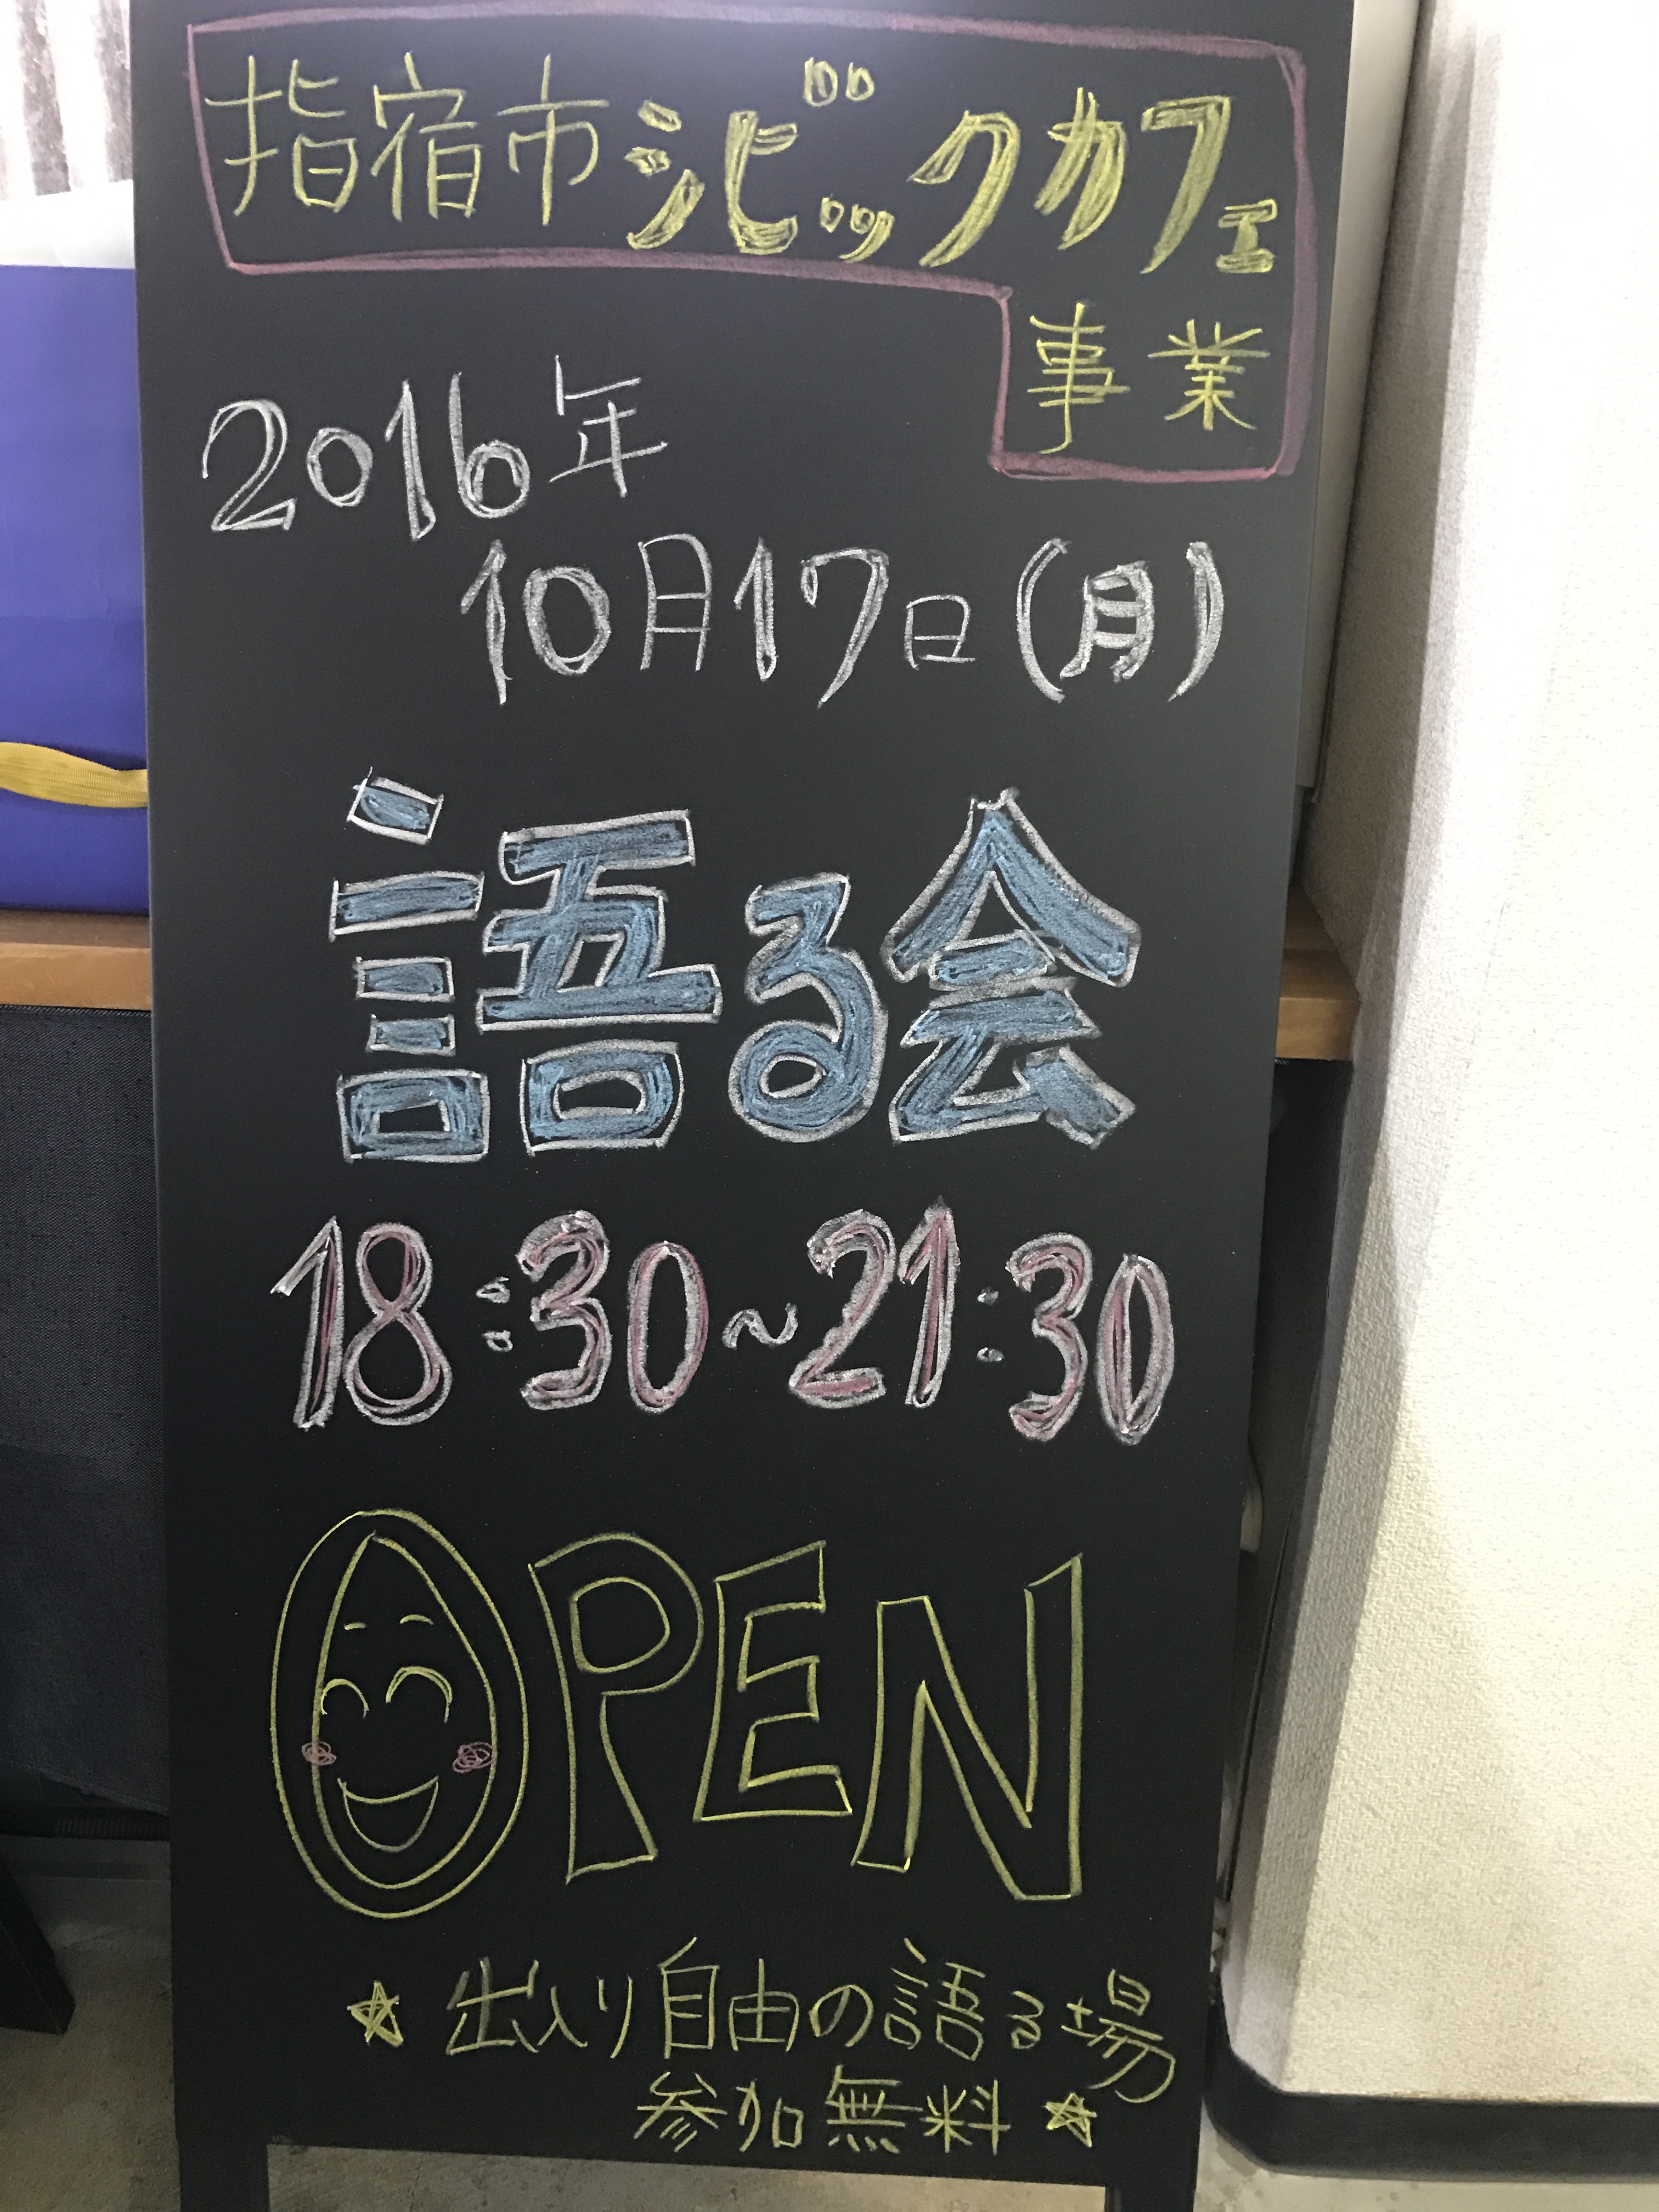 指宿市シビックカフェ
事業
2016年
10月17日(月)
語る会
18:30~21:30
OPEN
☆ 出入り自由の語る場
参加無料 ☆